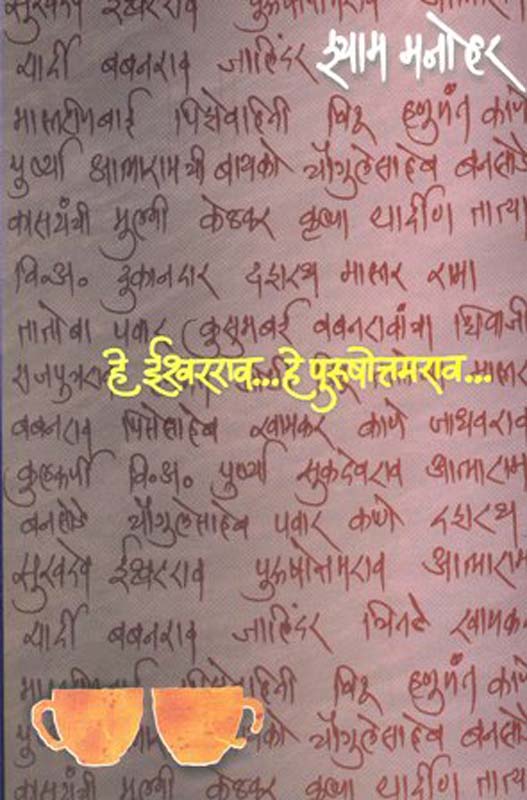 सुखदेव ईश्वरराव पुरूषोत्तमराव आत्माराम
यार्दी बबनराव जालिंदर
श्याम मनोहर
मास्तरीणबाई पिसेवहिनी चिटू हणुमंत काणे
पुर्ष्या आत्मारामची बायको चौगुलेसाहेब बनसोडे
कासयंत्री मुलगी केळकर कृष्णा यार्दीण तात्या
वि.अ. दुकानदार दशरथ मास्तर रामा
तातोबा पवार कुसुमबई बबनरावांचा शिवाजी
हे ईश्वरराव...हे पुरुषोत्तमराव...
राजपुत्र मास्तर
बबनराव पिसेसाहेब खामकर काणे जाधवराव
कुलकर्णी वि.अ. पुर्ष्या सुकदेवराव आत्माराम
बनसोडे चौगुलेसाहेब पवार काणे दशरथ
सुखदेव ईश्वरराव पुरूषोत्तमराव आत्माराम
यार्दी बबनराव जालिंदर चितळे खामकर
चिटू हणुमंत काणे
बायको चौगुलेसाहेब बनसोडे
मुलगी केळकर कृष्णा यार्दीण तात्या